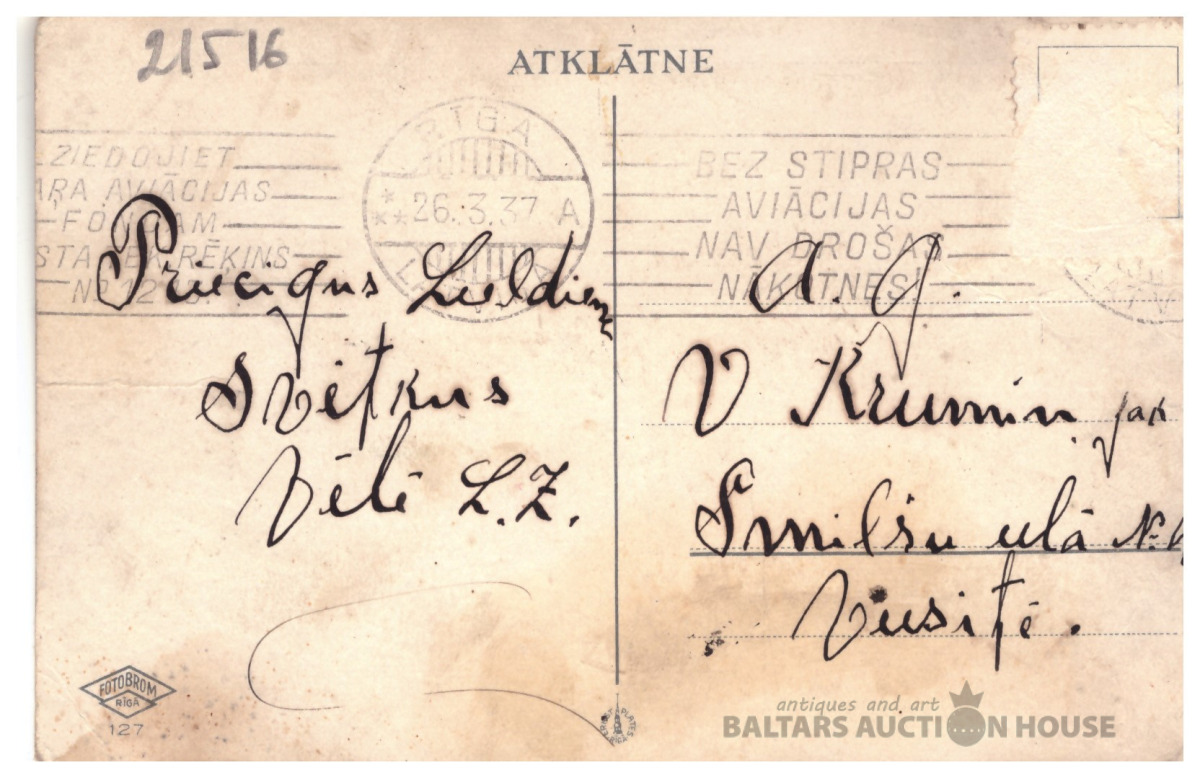 21516
ATKLĀTNE
ZIEDOJIET
AVIĀCIJAS
RĒĶINS
RĪGA
26.3.37 A
BEZ STIPRAS
AVIĀCIJAS
NAV DROŠAS
NĀKOTNES!
Priecigus Lieldien
Svētkus
Vēlē L.Z.
A. g.
V Krumin
Smilšu ulā №
FOTOBROM
RĪGĀ
127
antiques and art
BALTARS AUCTION HOUSE